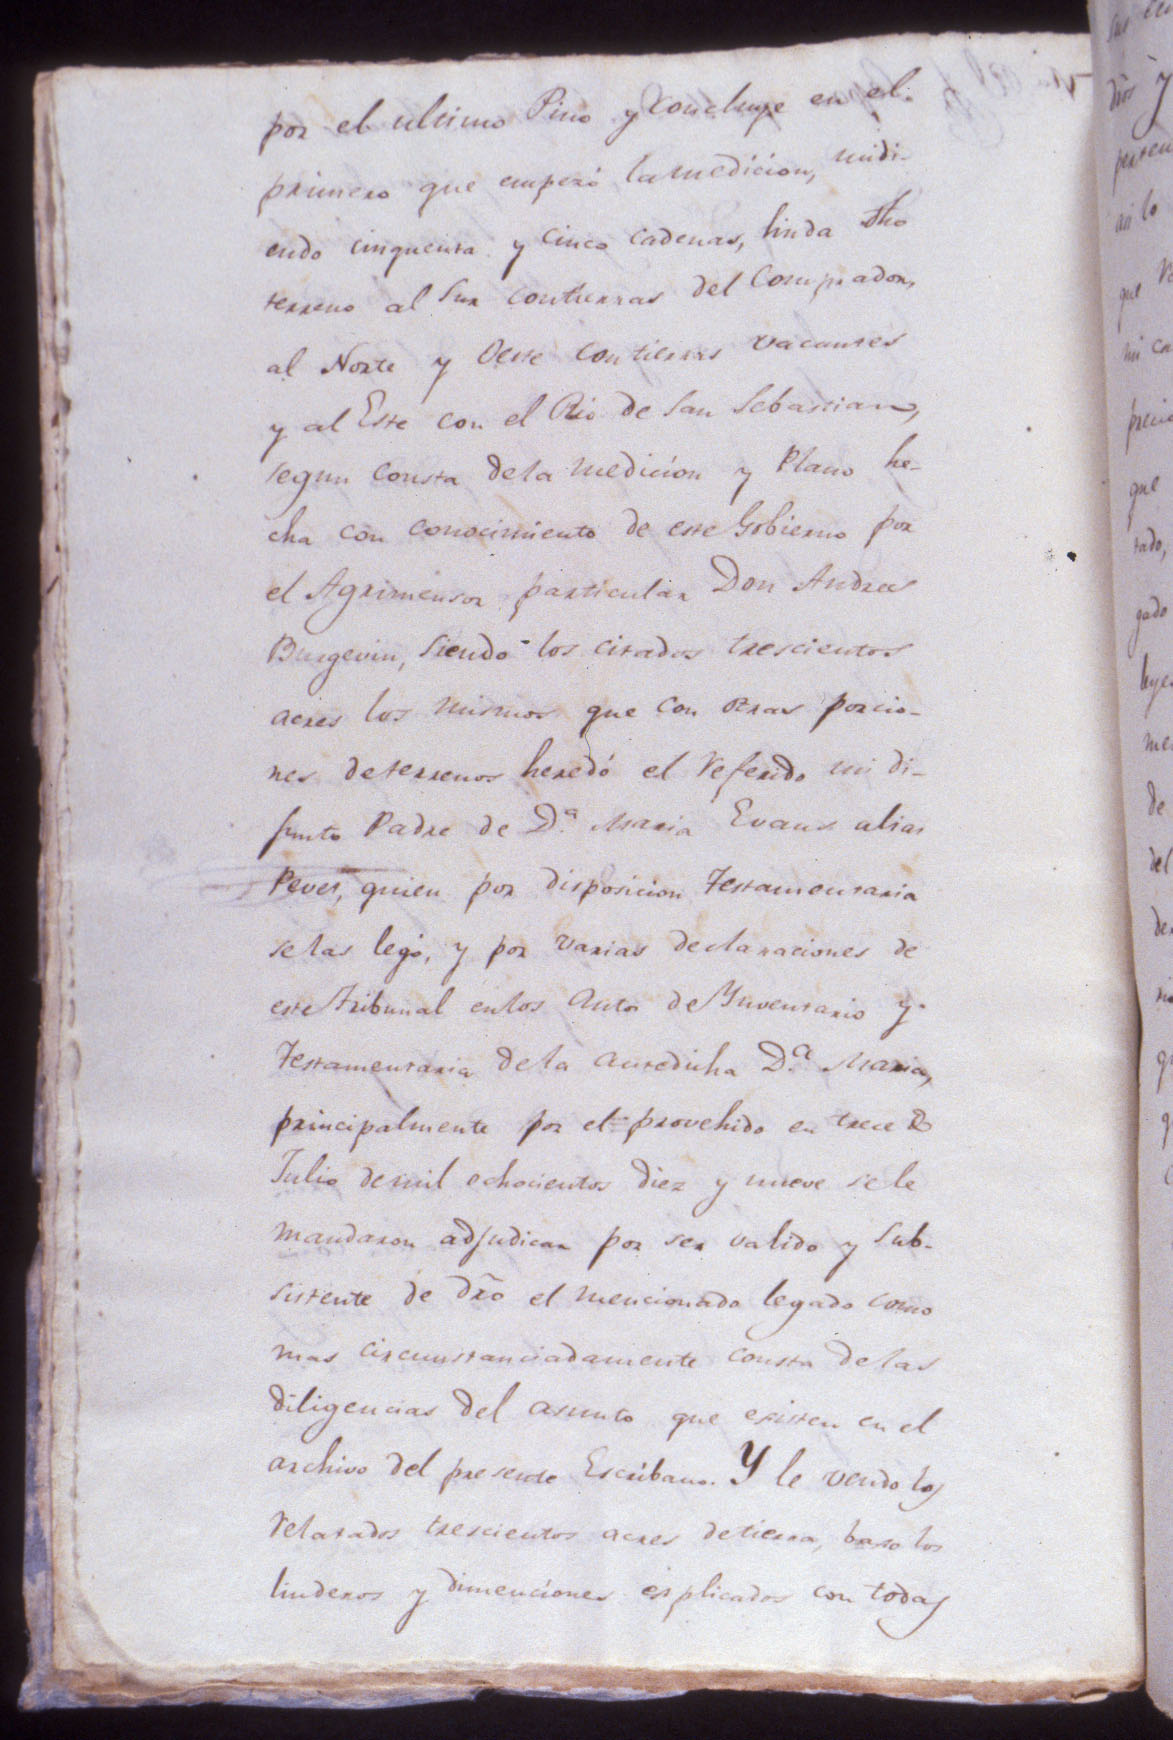 por el ultimo Pino y Concluye en el
primero que empezó la medicion, midi-
endo cinquenta y cinco cadenas, linda dho
terreno al Sur con tierras del Comprador,
al Norte y Oeste con tierras vacantes
y al Este con el Rio de San Sebastian,
segun consta de la medicion y Plano he-
cha con conocimiento de este Gobierno por
el Agrimensor particular Don Andres
Burgevin, siendo los citados trescientos
acres los mismos que con otras porcio-
nes de terrenos heredó el referido mi di-
funto Padre de D.ª Maria Evans alias
Peves, quien por disposicion Testamentaria
se las legó, y por varias declaraciones de
este Tribunal en los Autos de Ynventario y
Testamentaria de la antedicha D.ª Maria,
principalmente por el provehido en trece de
Julio de mil ochocientos diez y nueve se le
mandaron adjudicar por ser valido y sub-
sistente de dro el mencionado legado como
mas circunstanciadamente consta de las
diligencias del asunto que existen en el
archivo del presente Escribano. Y le vendo los
relatados trescientos acres de tierra, baxo los
linderos y dimenciones esplicados con todas
sus
dros y
perten
asi lo
que
mi ca
precio
que
tado,
gado
leyes
me
de
del